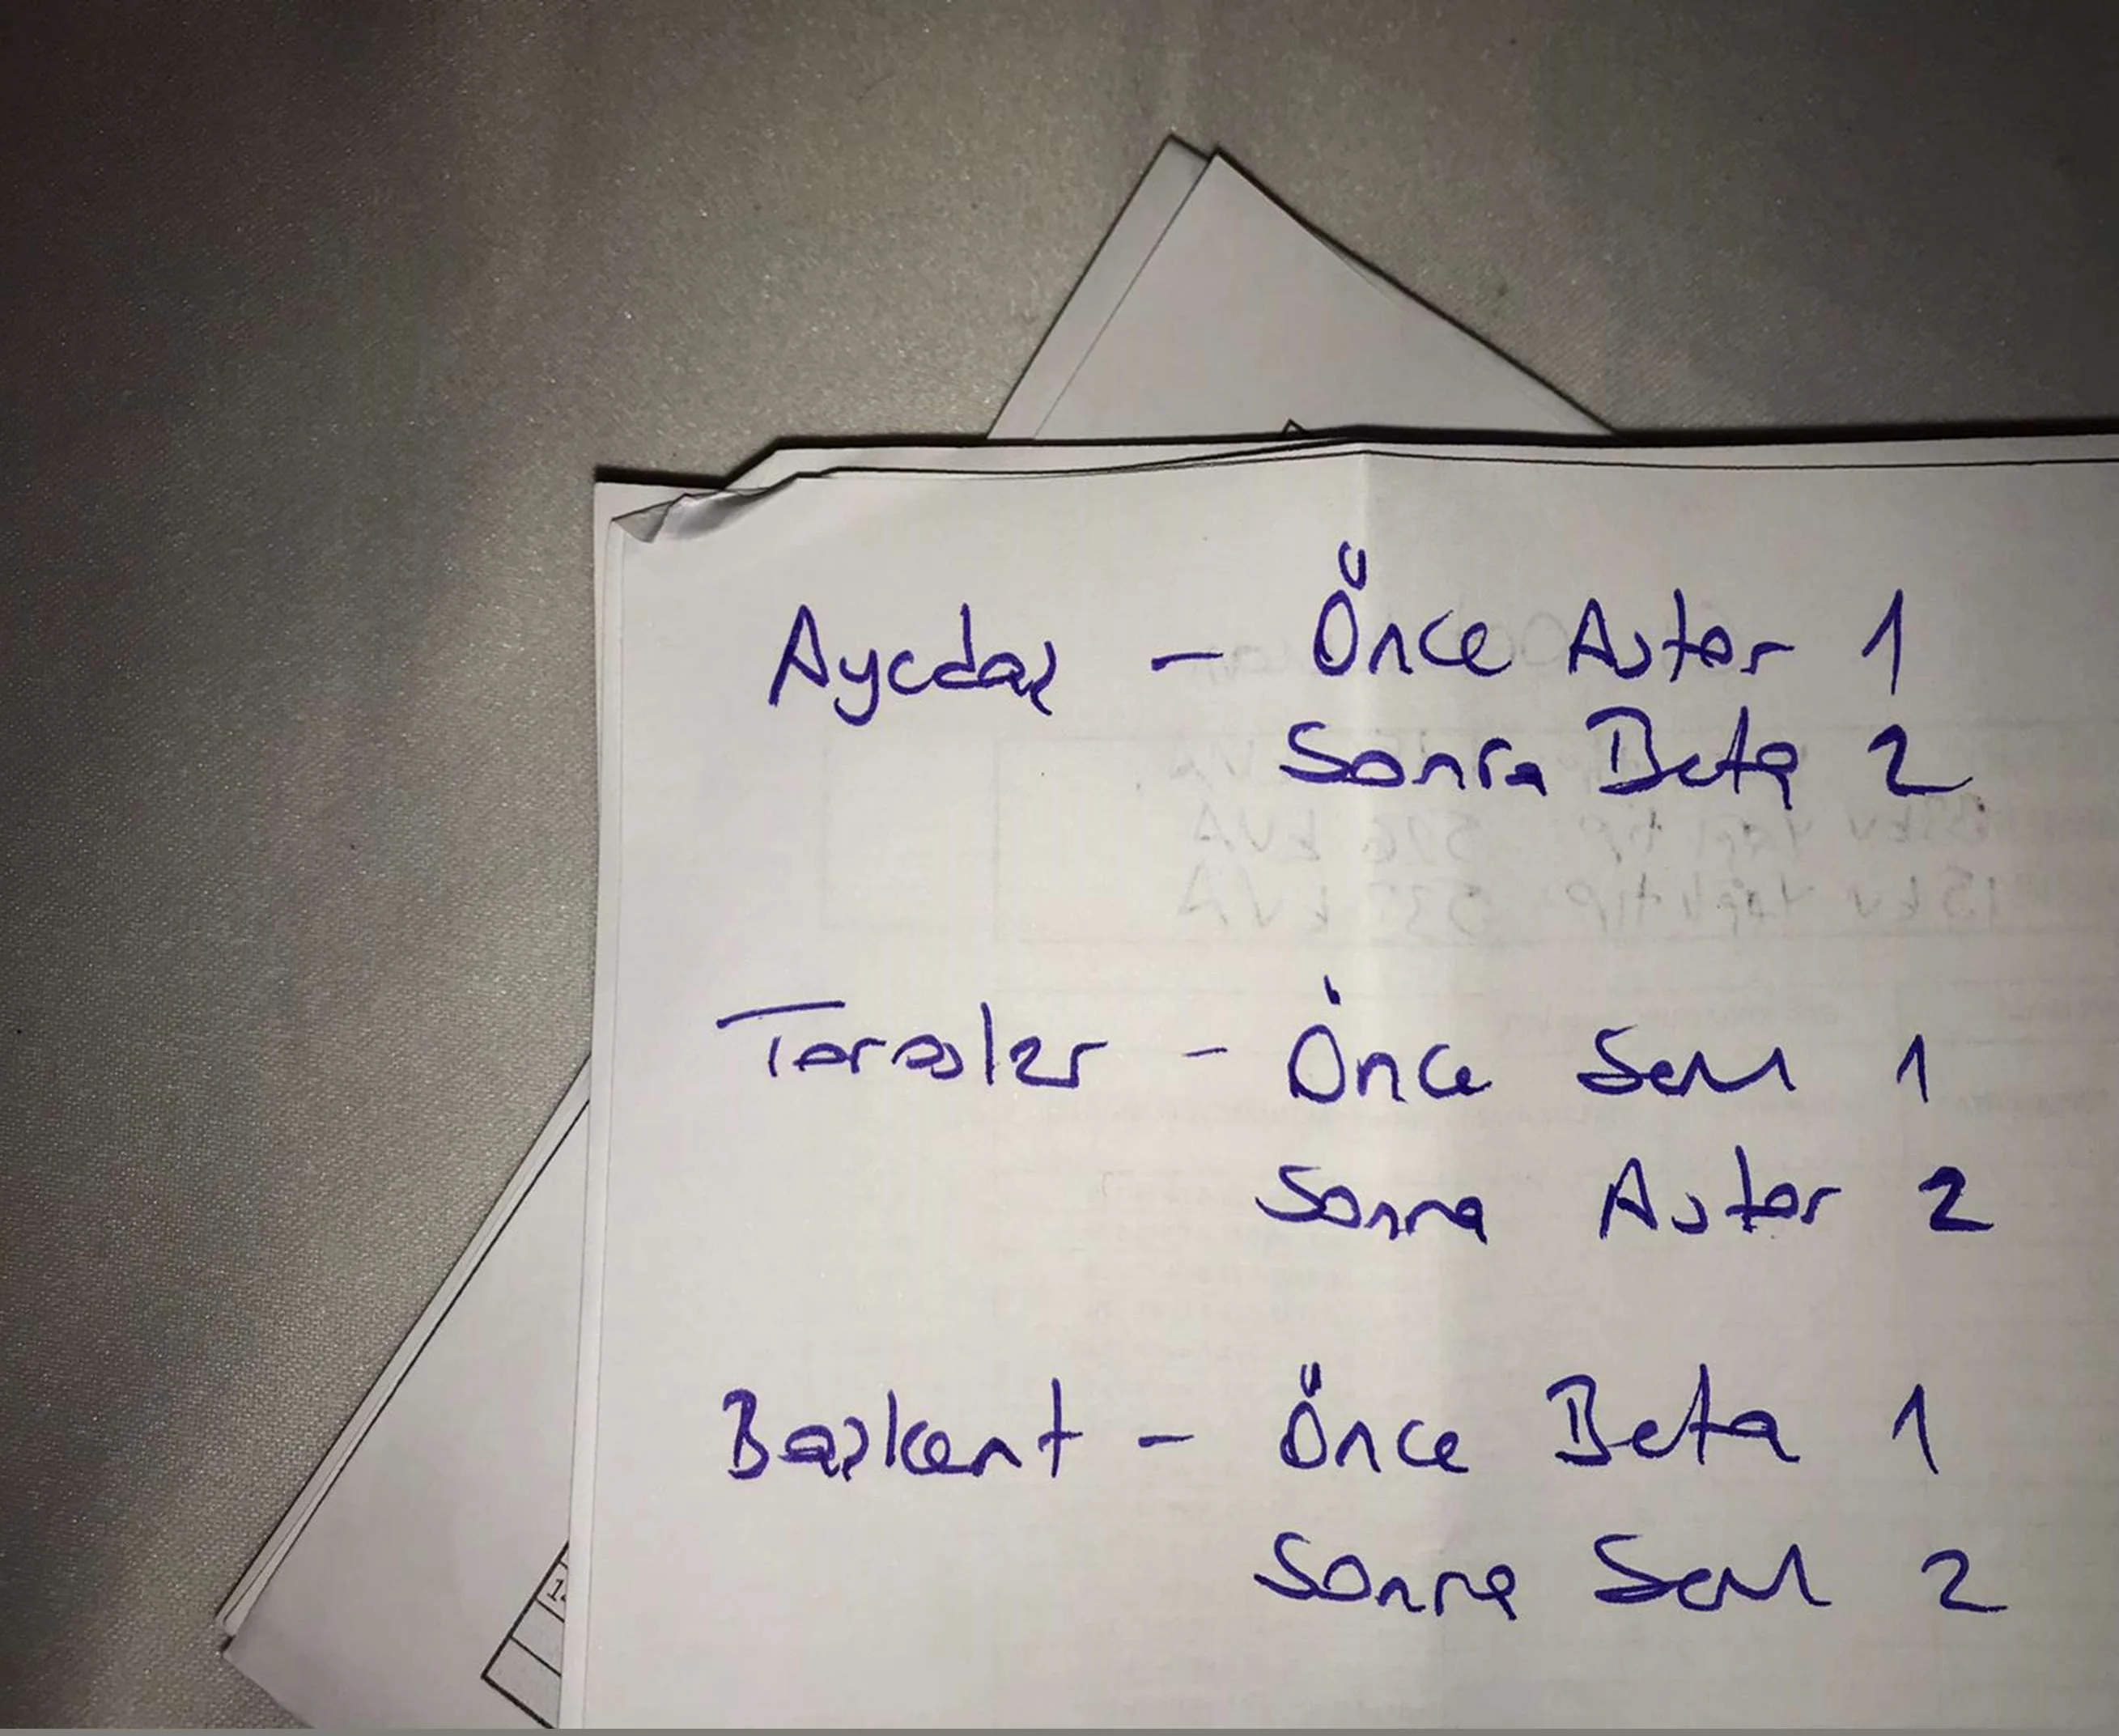 Aycdaş - Önce Astor 1
Sonra Beta 2
Toroslar - Önce Sem 1
Sonra Astor 2
Başkent - Önce Beta 1
Sonra Sem 2